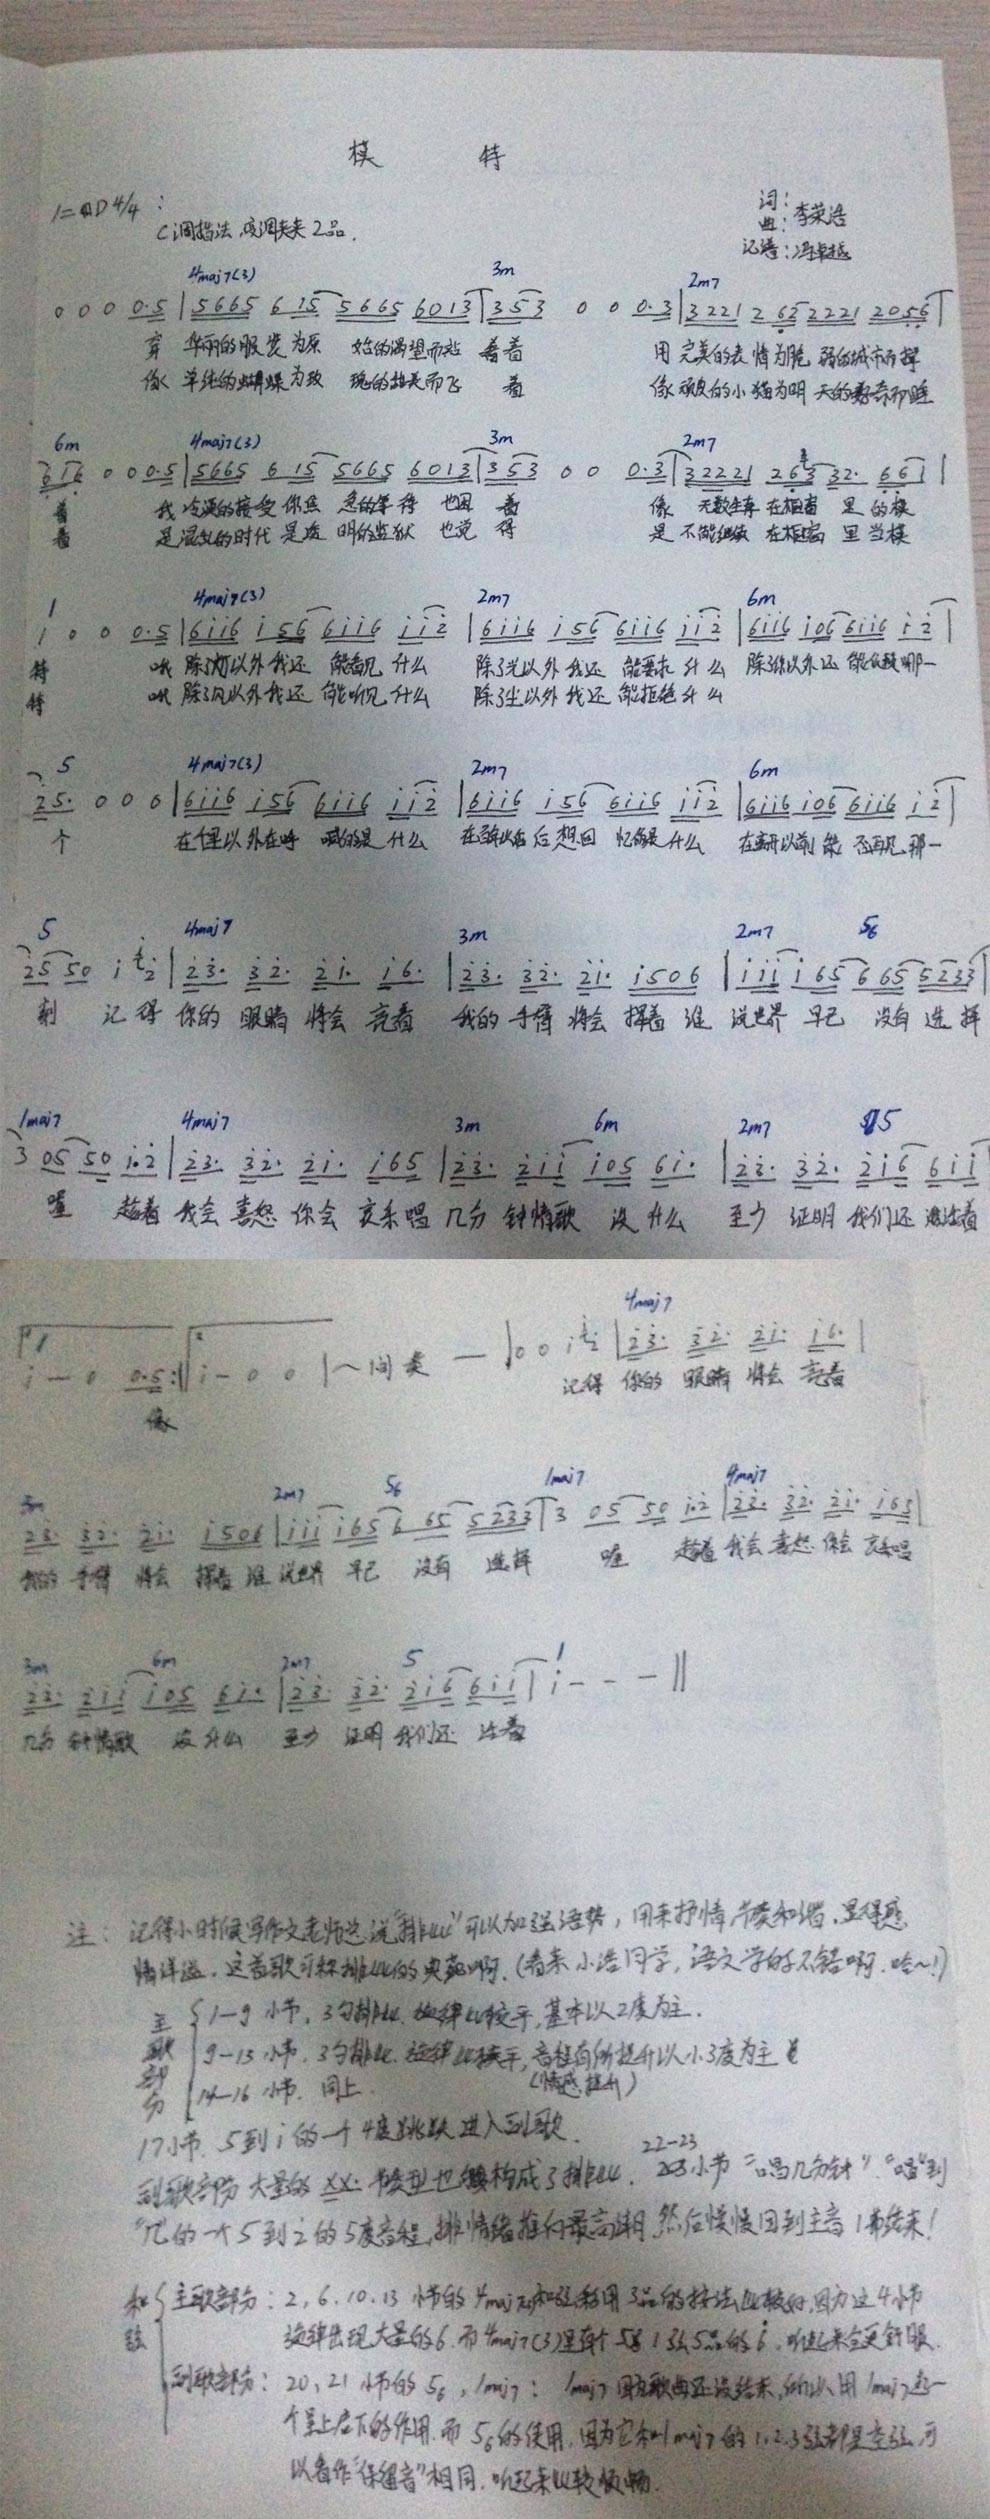 模 特
1=D 4/4 :
C调指法,变调夹夹2品.
词:
曲: 李荣浩
记谱: 冯卓越
4maj7(3) 3m 2m7
0 0 0 0.5 | 5665 6 15 5665 6013 | 353 0 0 0.3 | 3221 2 62 2221 2056 |
穿 华丽的服装为原 始的渴望而站 着着 用 完美的表 情为脆 弱的城市而撑
像 单纯的蝴蝶为玫 瑰的 而飞 着 像 顽皮的小 猫为明 天的好奇而睡
6m 4maj7(3) 3m 2m7
616 0 0 0.5 | 5665 6 15 5665 6013 | 353 0 0 0.3 | 32221 263 32. 661 |
着 我 冷漠的接受 你焦 急的等待 也困 着 像 无数生存 在橱窗 里 的模
着 是混乱的时代 是透 明的监狱 也觉 得 是 不能继续 在橱窗 里 当模
1 4maj7(3) 2m7 6m
i 0 0 0.5 | 6ii6 i 56 6ii6 ii2 | 6ii6 i56 6ii6 ii2 | 6ii6 i06 6ii6 i2 |
特 哦 除了灯以外我还 能看见 什么 除了光以外 我还 能要求 什么 除了你以外还 能依赖哪一
特 哦 除了风以外我还 能听见 什么 除了尘以外 我还 能拒绝 什么
5 4maj7(3) 2m7 6m
25. 0 0 0 | 6ii6 i56 6ii6 ii2 | 6ii6 i56 6ii6 ii2 | 6ii6 i06 6ii6 i2 |
个 在千里以外在呼 喊的是 什么 在 以后 后 想回 忆的是 什么 在离开以前 能 否再见 那一
5 4maj7 3m 2m7 56
25 50 i 2 | 23. 32. 21. i6. | 23. 32. 21. i506 | iii i65 6 65 5233 |
刻 记 得 你的 眼睛 将会 亮着 我的 手臂 将会 挥着 谁 说世界 早已 没有 选 择
1maj7 4maj7 3m 6m 2m7 5
3 05 50 i.2 | 23. 32. 2i. i65 | 23. 2ii i05 6i. | 23. 32. 2i6 6ii
喔 趁着 我会 喜怒 你会 哀乐唱 几分 钟情歌 没 什么 至少 证明 我们还 活着
1 4maj7
i — 0 0.5 :|| i — 0 0 | ～间奏 — | 0 0 i 2 | 23. 32. 2i. i6. |
像 记得 你的 眼睛 将会 亮着
3m 2m7 56 1maj7 4maj7
23. 32. 2i. i506 | iii i65 6 65 5233 | 3 05 50 i.2 | 23. 32. 2i. i65 |
我的 手臂 将会 挥着 谁 说世界 早已 没有 选择 喔 趁着 我会 喜怒 你会 哀乐唱
3m 6m 2m7 5 1
23. 2ii i05 6i. | 23. 32. 2i6 6ii | i — — — ||
几分 钟情歌 没 什么 至少 证明 我们还 活着
注: 记得小时候写作文老师总说"排比"可以加强语势,用来抒情节奏和谐,显得感
情洋溢.这首歌可称排比的典范啊.(看来小浩同学,语文学的不错啊.哈~!)
主歌部分
1-9 小节,3句排比.旋律比较平,基本以2度为主.
9-13 小节.3句排比.旋律比较平,音程有所提升以小3度为主
(情感提升)
14-16 小节.同上.
17小节.5到i的一个4度跳跃进入副歌.
副歌部分大量的XX.节奏型也 构成了排比. 22-23 小节"唱几分钟"."唱"到
"几"的一个5到2的5度音程,将情绪推向最高潮 然后慢慢回到主音1来结束!
和弦
主歌部分: 2,6,10,13 小节的4maj7和弦移用3品的按法比较好,因为这4小节
旋律出现大量的6.而4maj7(3)里有个 1弦5品的6.听起来会更舒服.
副歌部分: 20,21 小节的56,1maj7: 1maj7因为歌曲还没结束,所以用1maj7起一
个呈上启下的作用.而56的使用,因为它和1maj7的1.2.3弦都是空弦,可
以看作"保留音"相同.听起来比较顺畅.